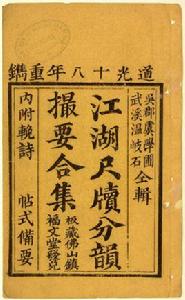 道光十八年重鐫
吳郡虞學圃
武溪溫岐石 仝輯
江湖尺牘分韻
撮要合集
板藏佛山鎮
福文堂發兌
內附輓詩　帖式備要